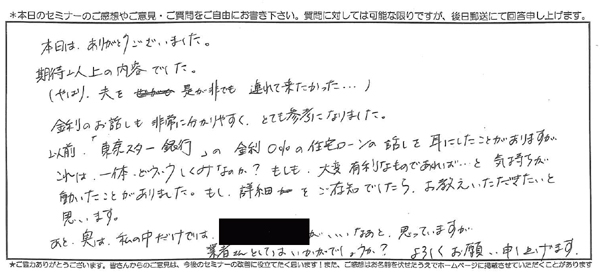 *本日のセミナーのご感想やご意見・ご質問をご自由にお書き下さい。質問に対しては可能な限りですが、後日郵送にて回答申し上げます。
本日は、ありがとうございました。
期待以上の内容でした。
(やはり、夫を 是が非でも 連れて来たかった…)
金利のお話しも 非常に分かりやすく、とても参考になりました。
以前、「東京スター銀行」の金利0%の住宅ローンの話しを耳にしたことがありますが
これは、一体、どういうしくみなのか? もしも、大変有利なものであれば…と 気持ちが
動いたことがありました。もし、詳細をご存知でしたら、お教えいただきたいと
思います。
あと、実は、私の中だけでは、 が、いいなあと、思っていますが
業者さんとしてはいかがでしょうか? よろしくお願い申し上げます。
*ご協力ありがとうございます。皆さんからのご意見は、今後のセミナーの改善に役立てたく思います!また、ご感想はお名前を伏せたうえでホームページに掲載させていただくことがあります